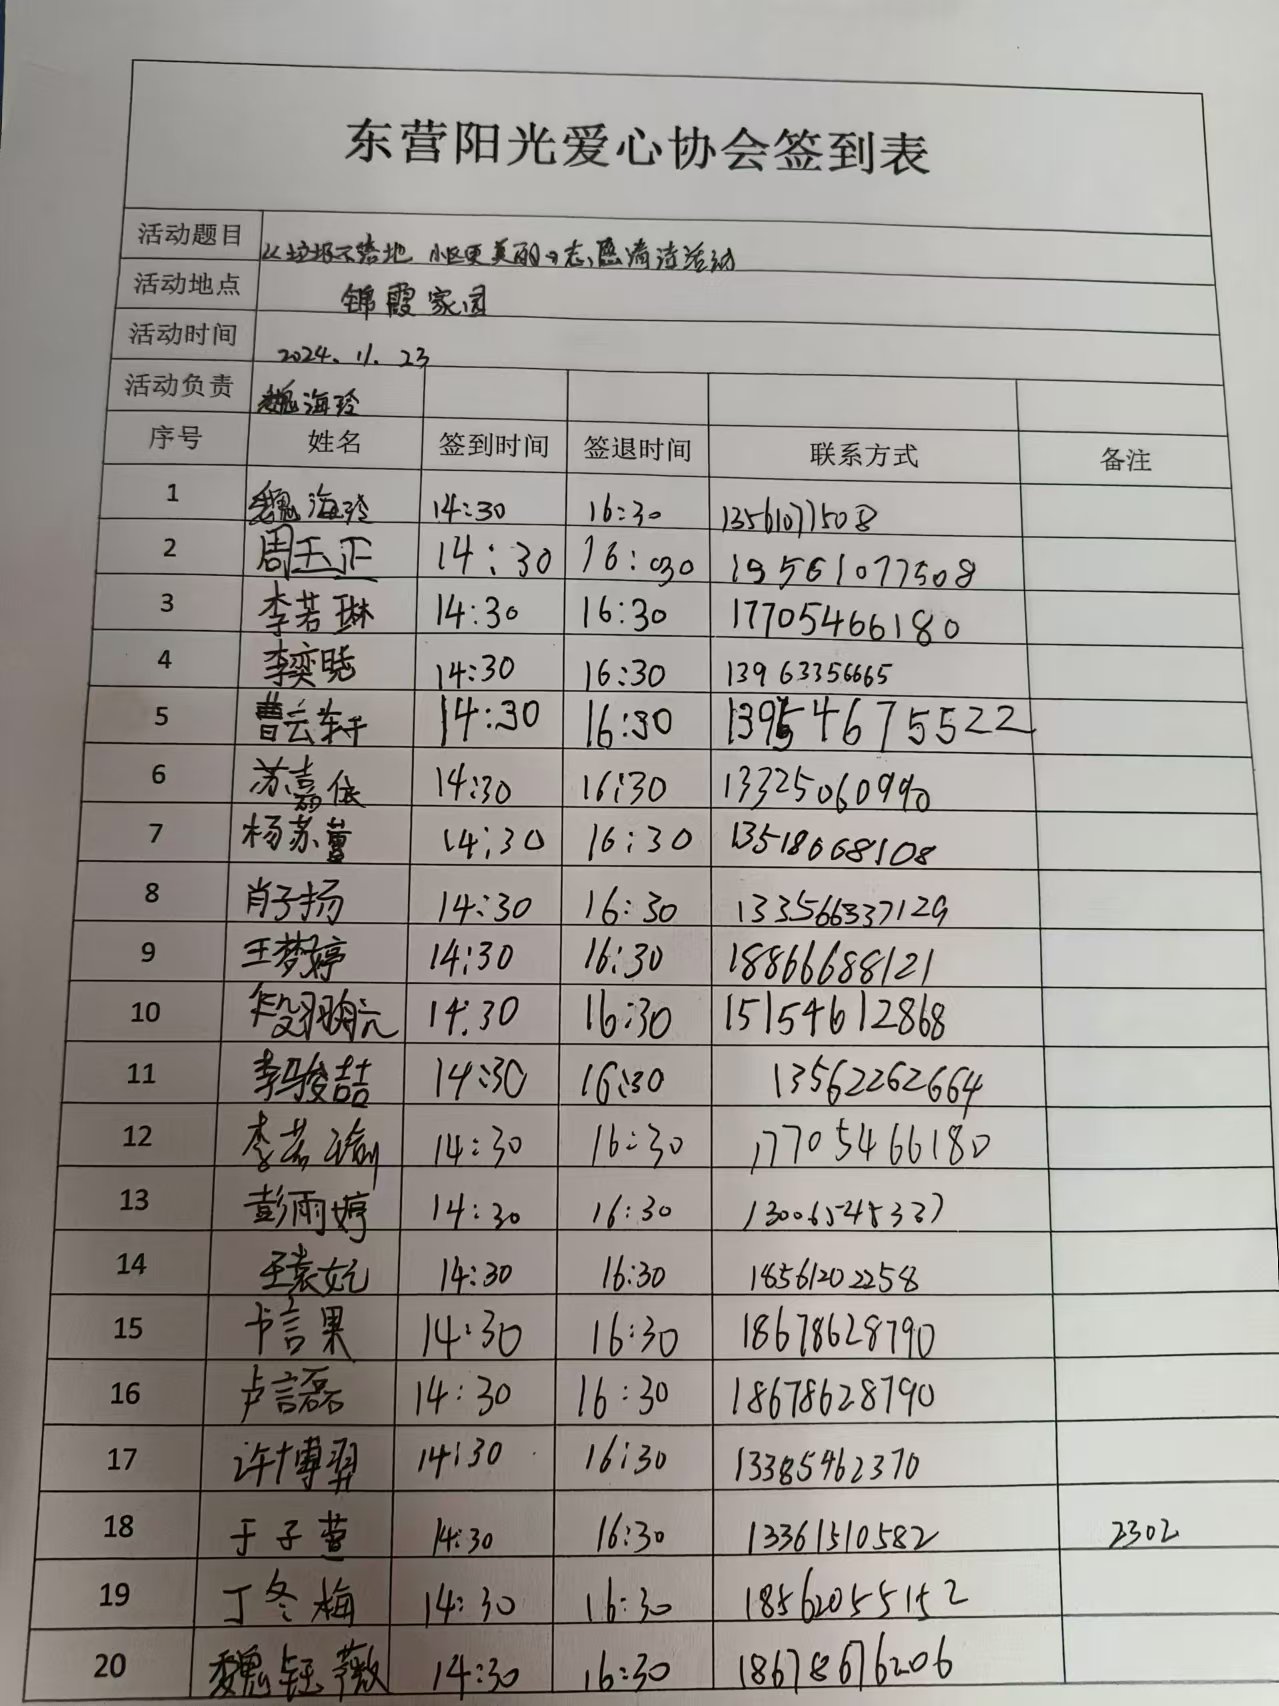 东营阳光爱心协会签到表
活动题目 “垃圾不落地 小区更美丽”志愿清洁活动
活动地点 锦霞家园
活动时间 2024.11.23
活动负责 魏海玲
序号 姓名 签到时间 签退时间 联系方式 备注
1 魏海玲 14:30 16:30 13561077508
2 周玉正 14:30 16:030 19561077508
3 李若琳 14:30 16:30 17705466180
4 李奕晓 14:30 16:30 13963356665
5 曹云轩 14:30 16:30 13954675522
6 苏嘉依 14:30 16:30 13325060990
7 杨苏萱 14:30 16:30 13518668108
8 肖子扬 14:30 16:30 133566337129
9 王梦婷 14:30 16:30 18866688121
10 14:30 16:30 15154612868
11 李骏喆 14:30 16:30 13562262664
12 李若瑜 14:30 16:30 17705466180
13 彭雨婷 14:30 16:30 13006545337
14 王袁妃 14:30 16:30 18561202258
15 卡言果 14:30 16:30 18678628790
16 卢言磊 14:30 16:30 18678628790
17 许博羿 14:30 16:30 13385462370
18 于子萱 14:30 16:30 13361510582 2302
19 丁冬梅 14:30 16:30 18562055152
20 魏钰薇 14:30 16:30 18678676206